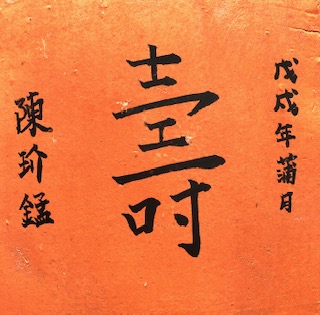 戊戌年蒲月
壽
陳玠錳